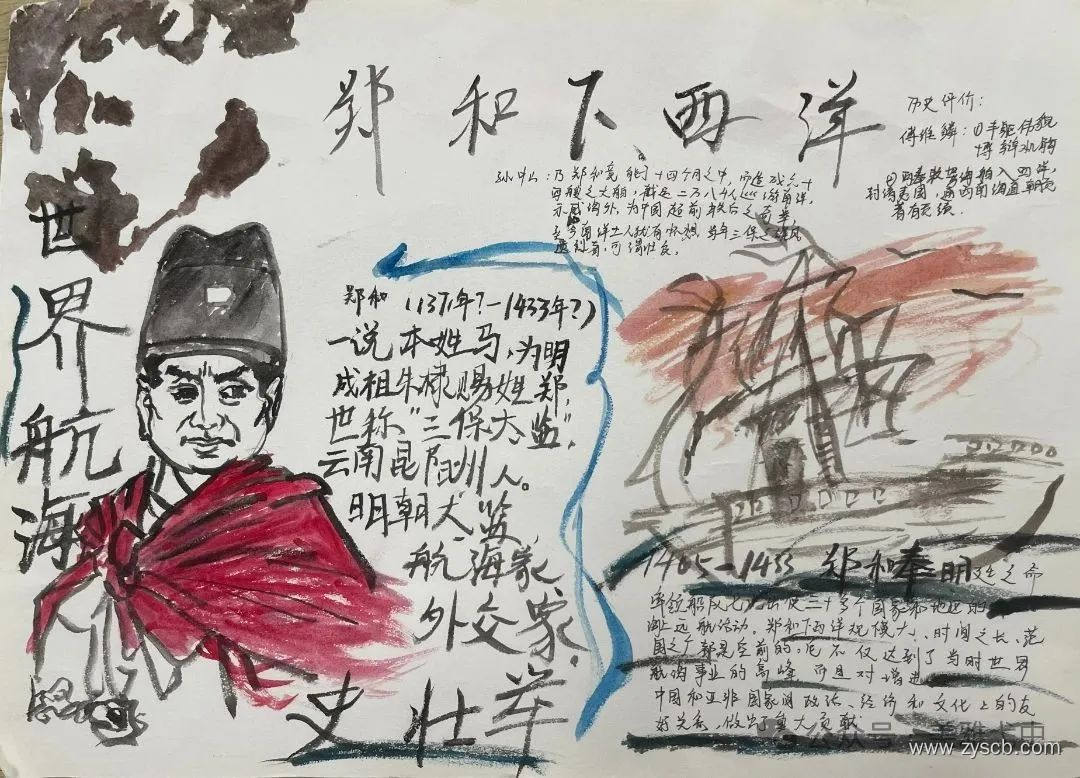 郑和下西洋
历史评价：
傅维鳞：①手驱伟貌
博辩机锋
孙中山：乃郑和竟能于十四个月之中，而造成六十
四艘之大船，载运二万八千人巡游南洋，
示威海外，为中国超前轶后之奇举
至今南洋土人犹有怀想当年三保之雄风
遗烈者，可谓壮矣。
世界航海
史壮举
郑和（1371年?－1433年?）
一说本姓马，为明
成祖朱棣赐姓郑，
世称“三保太监”，
云南昆阳州人。
明朝太监
航海家
外交家，
1405-1433 郑和奉明之命
率领船队七次出使三十多个国家和地区的
海上远航活动。郑和下西洋规模大、时间之长、范
围之广都是空前的，它不仅达到了当时世界
航海事业的高峰 而且对增进
中国和亚非国家间政治、经济和文化上的友
好关系，做出了重大贡献
公众号 美雅卡申
www.zyscb.com